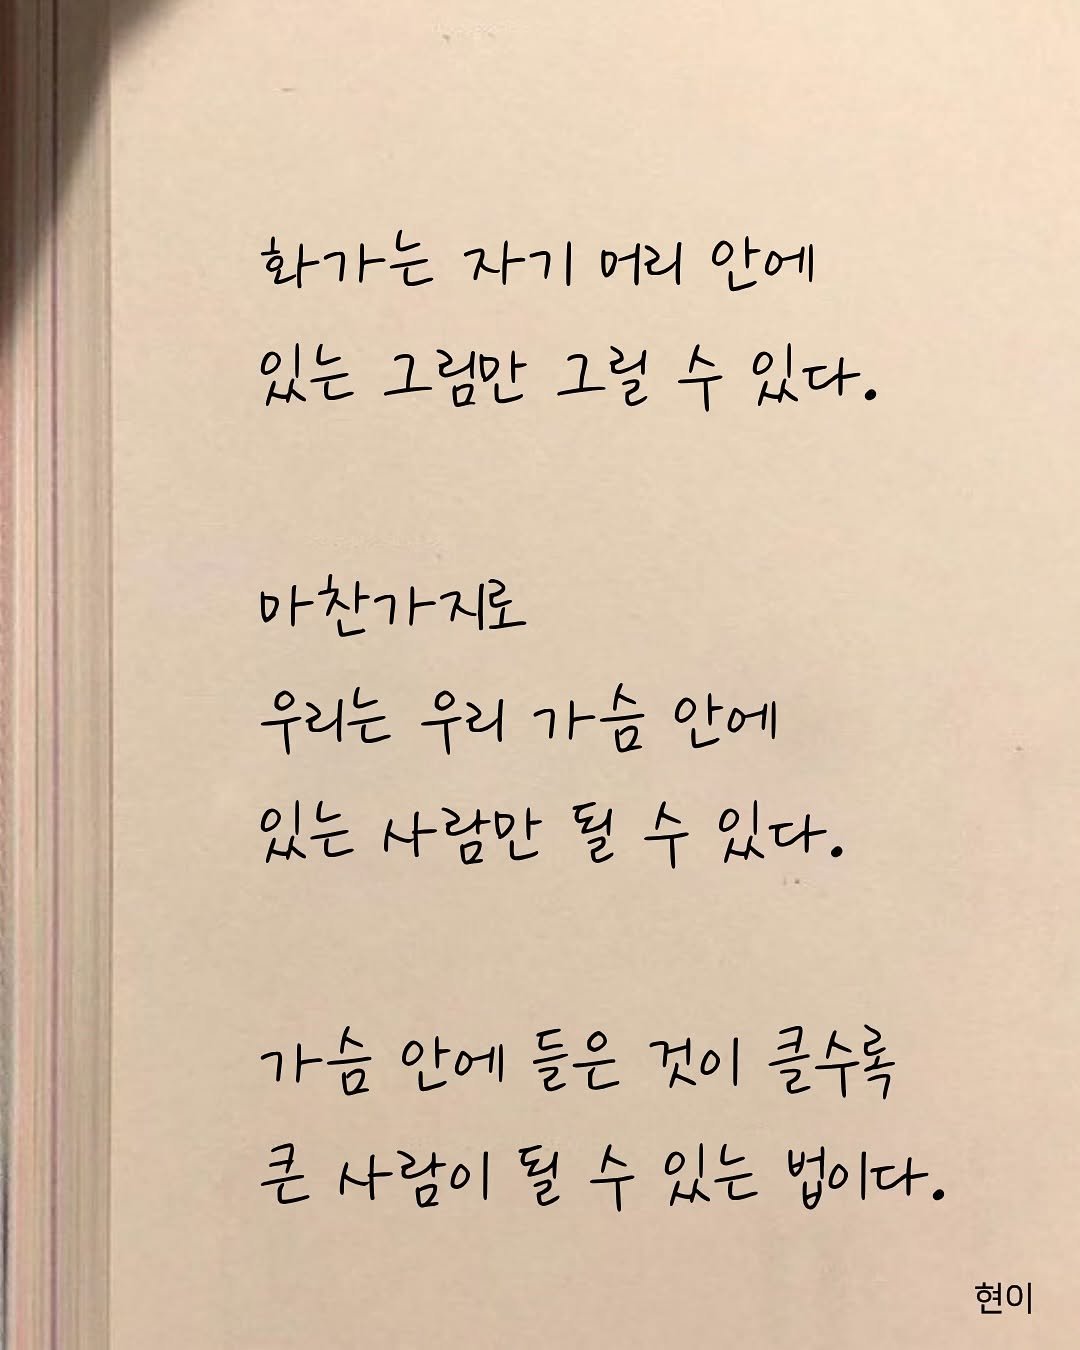 화가는 자기 머리 안에
있는 그림만 그릴 수 있다.
마찬가지로
우리는 우리 가슴 안에
있는 사람만 될 수 있다.
가슴 안에 들은 것이 클수록
큰 사람이 될 수 있는 법이다.
현이